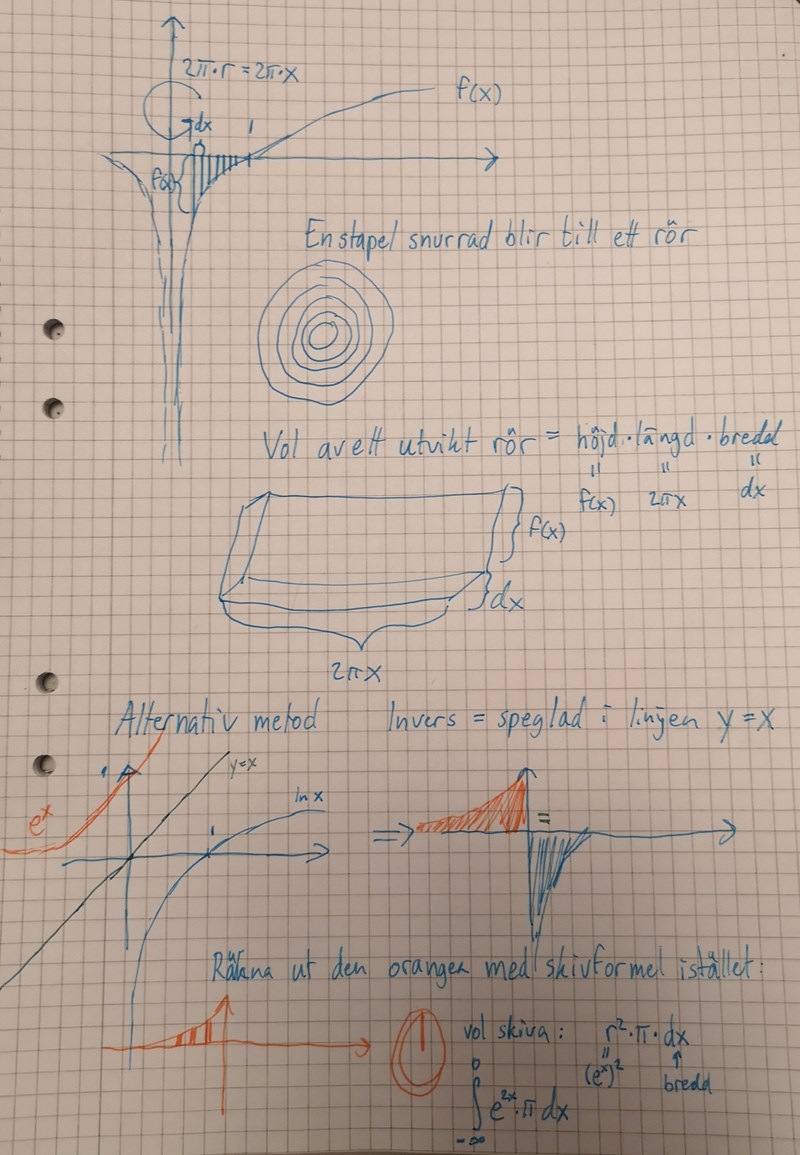 2π·r = 2π·x
f(x)
dx
1
f(x)
En stapel snurrad blir till ett rör
Vol av ett utvikt rör = höjd · längd · bredd
" " "
f(x) 2πx dx
f(x)
dx
2πx
Alternativ metod Invers = speglad i linjen y = x
y=x
1
e^x
1
ln x
⇒
=
Räkna ut den orangea med skivformel istället:
vol skiva: r²·π·dx
" ↑
(e^x)² bredd
∫_{-∞}^{0} e^{2x}·π dx